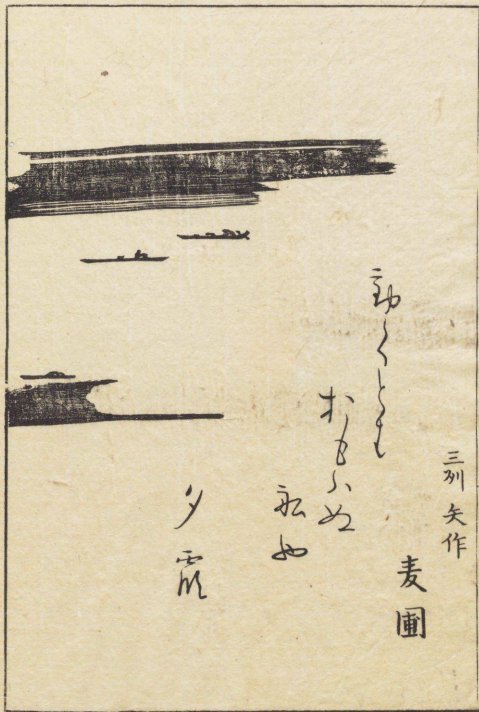 三列 矢作
麦圃
動くとも
おもはぬ
船や
夕霞